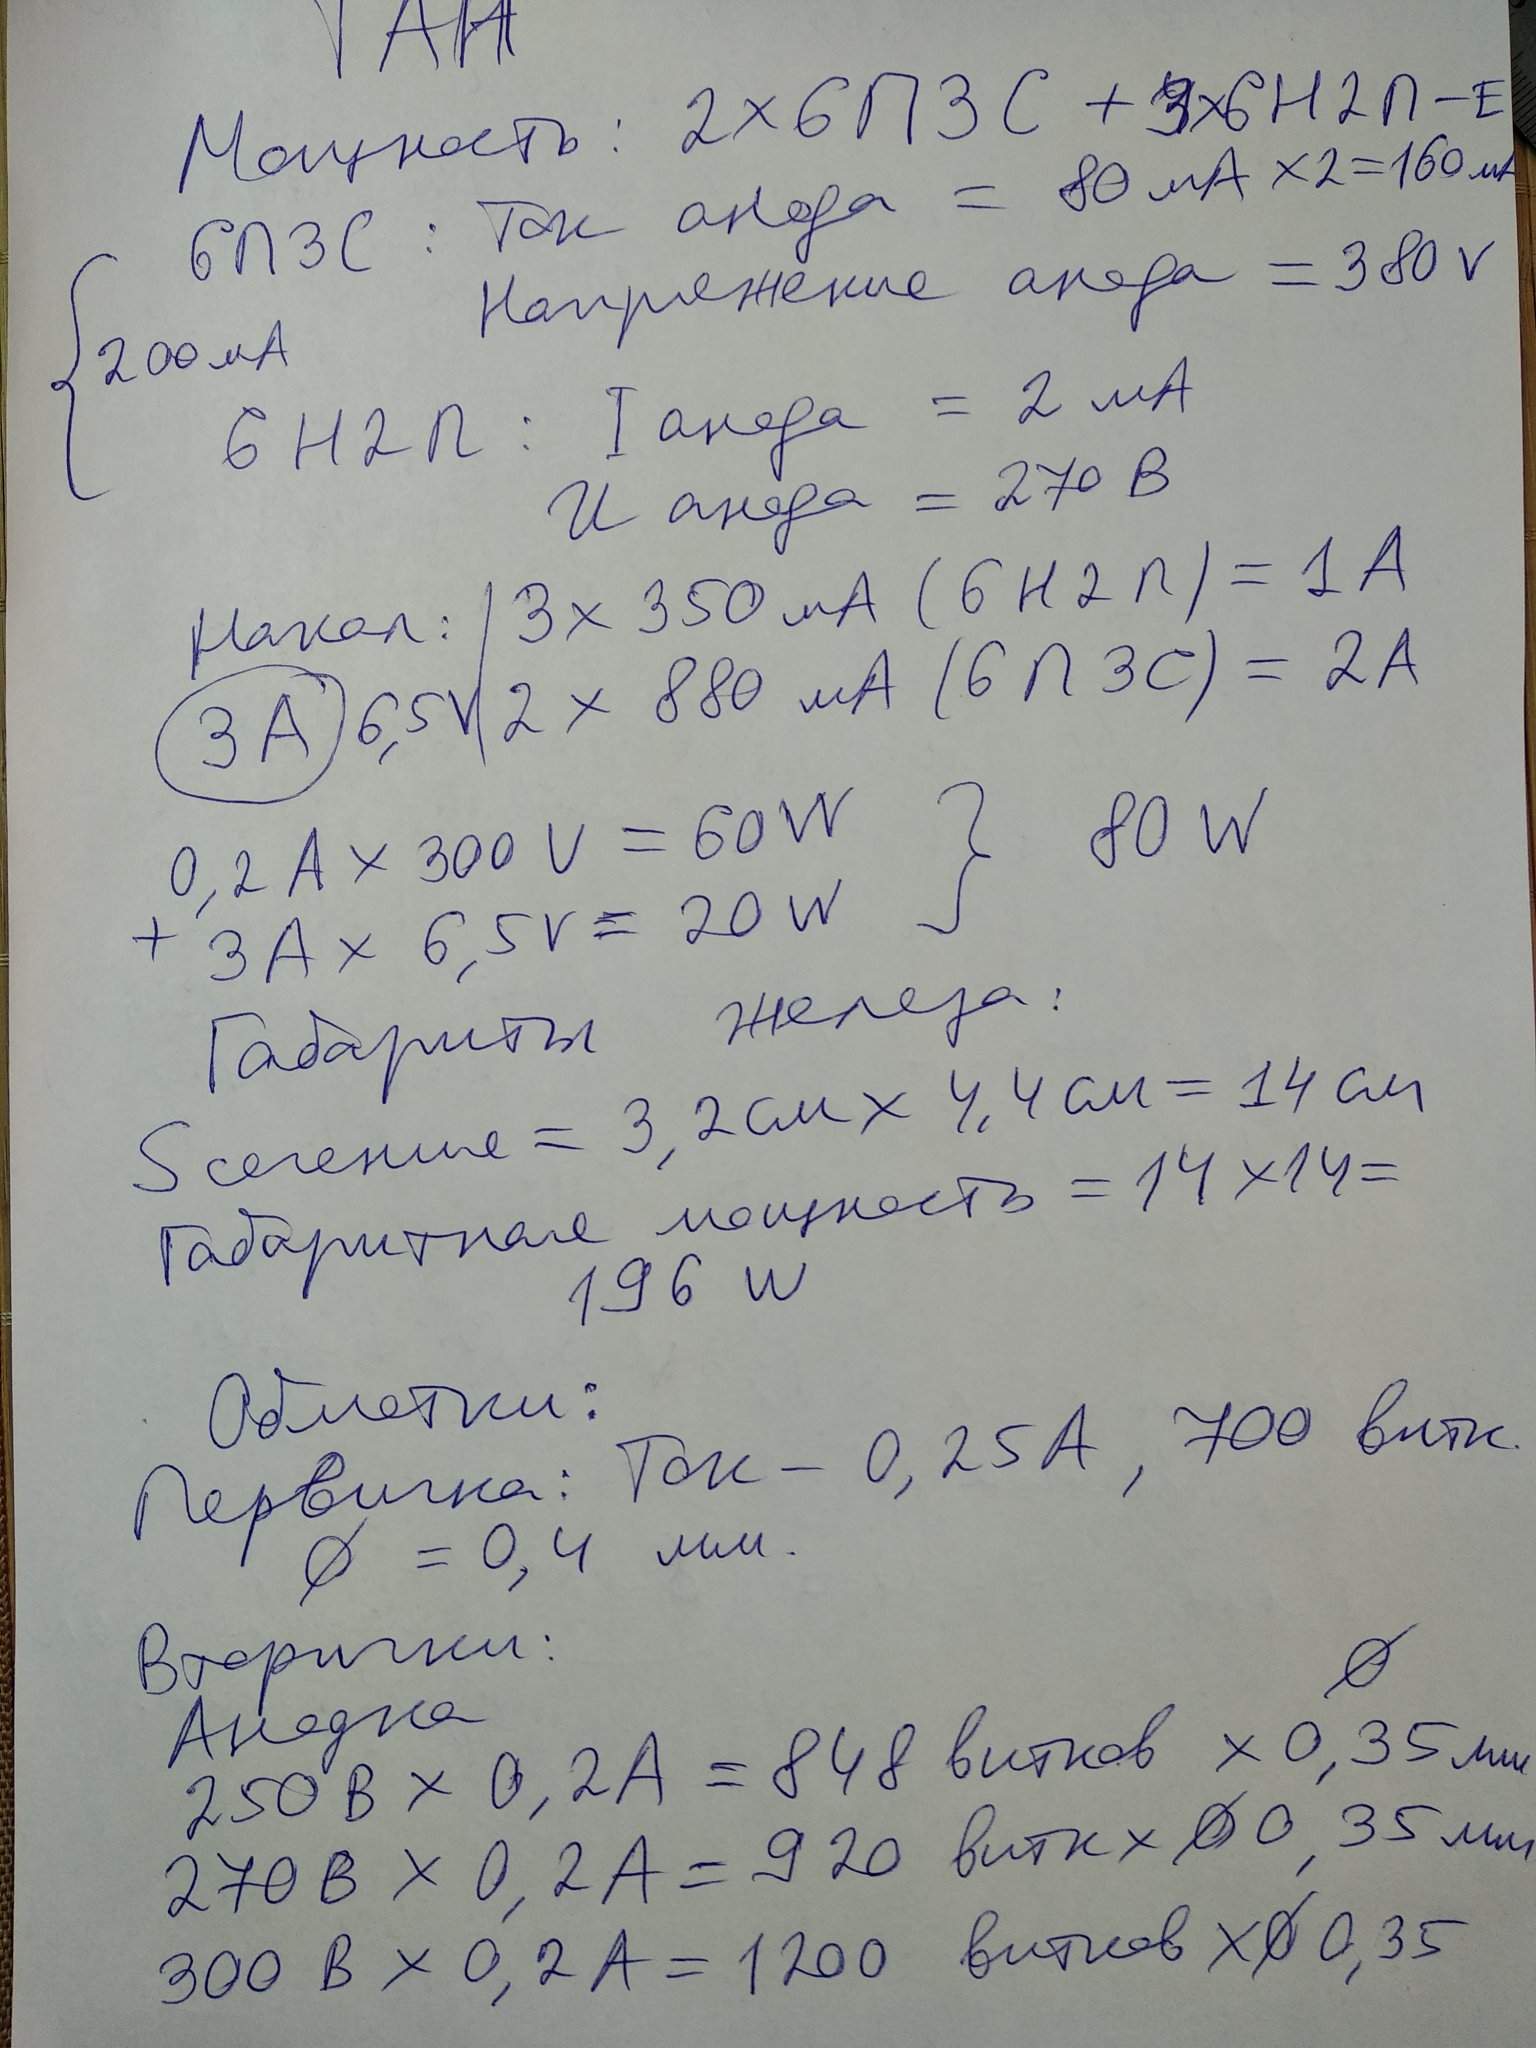 ТАН
Мощность: 2×6П3С + 3×6Н2П-Е
6П3С: Ток анода = 80 мА × 2 = 160 мА
Напряжение анода = 380 V
200 мА
6Н2П: I анода = 2 мА
U анода = 270 В
Накал: 3 × 350 мА (6Н2П) = 1 А
3А 6,5V 2 × 880 мА (6П3С) = 2А
0,2 А × 300 V = 60 W } 80 W
+ 3А × 6,5 V = 20 W
Габариты железа:
S сечение = 3,2 см × 4,4 см = 14 см
Габаритная мощность = 14 × 14 =
196 W
Обмотки:
Первичка: Ток – 0,25А, 700 витк.
Ø = 0,4 мм.
Вторички:
Анодка Ø
250 В × 0,2 А = 848 витков × 0,35 мм
270 В × 0,2 А = 920 витк × Ø 0,35 мм
300 В × 0,2 А = 1200 витков × Ø 0,35